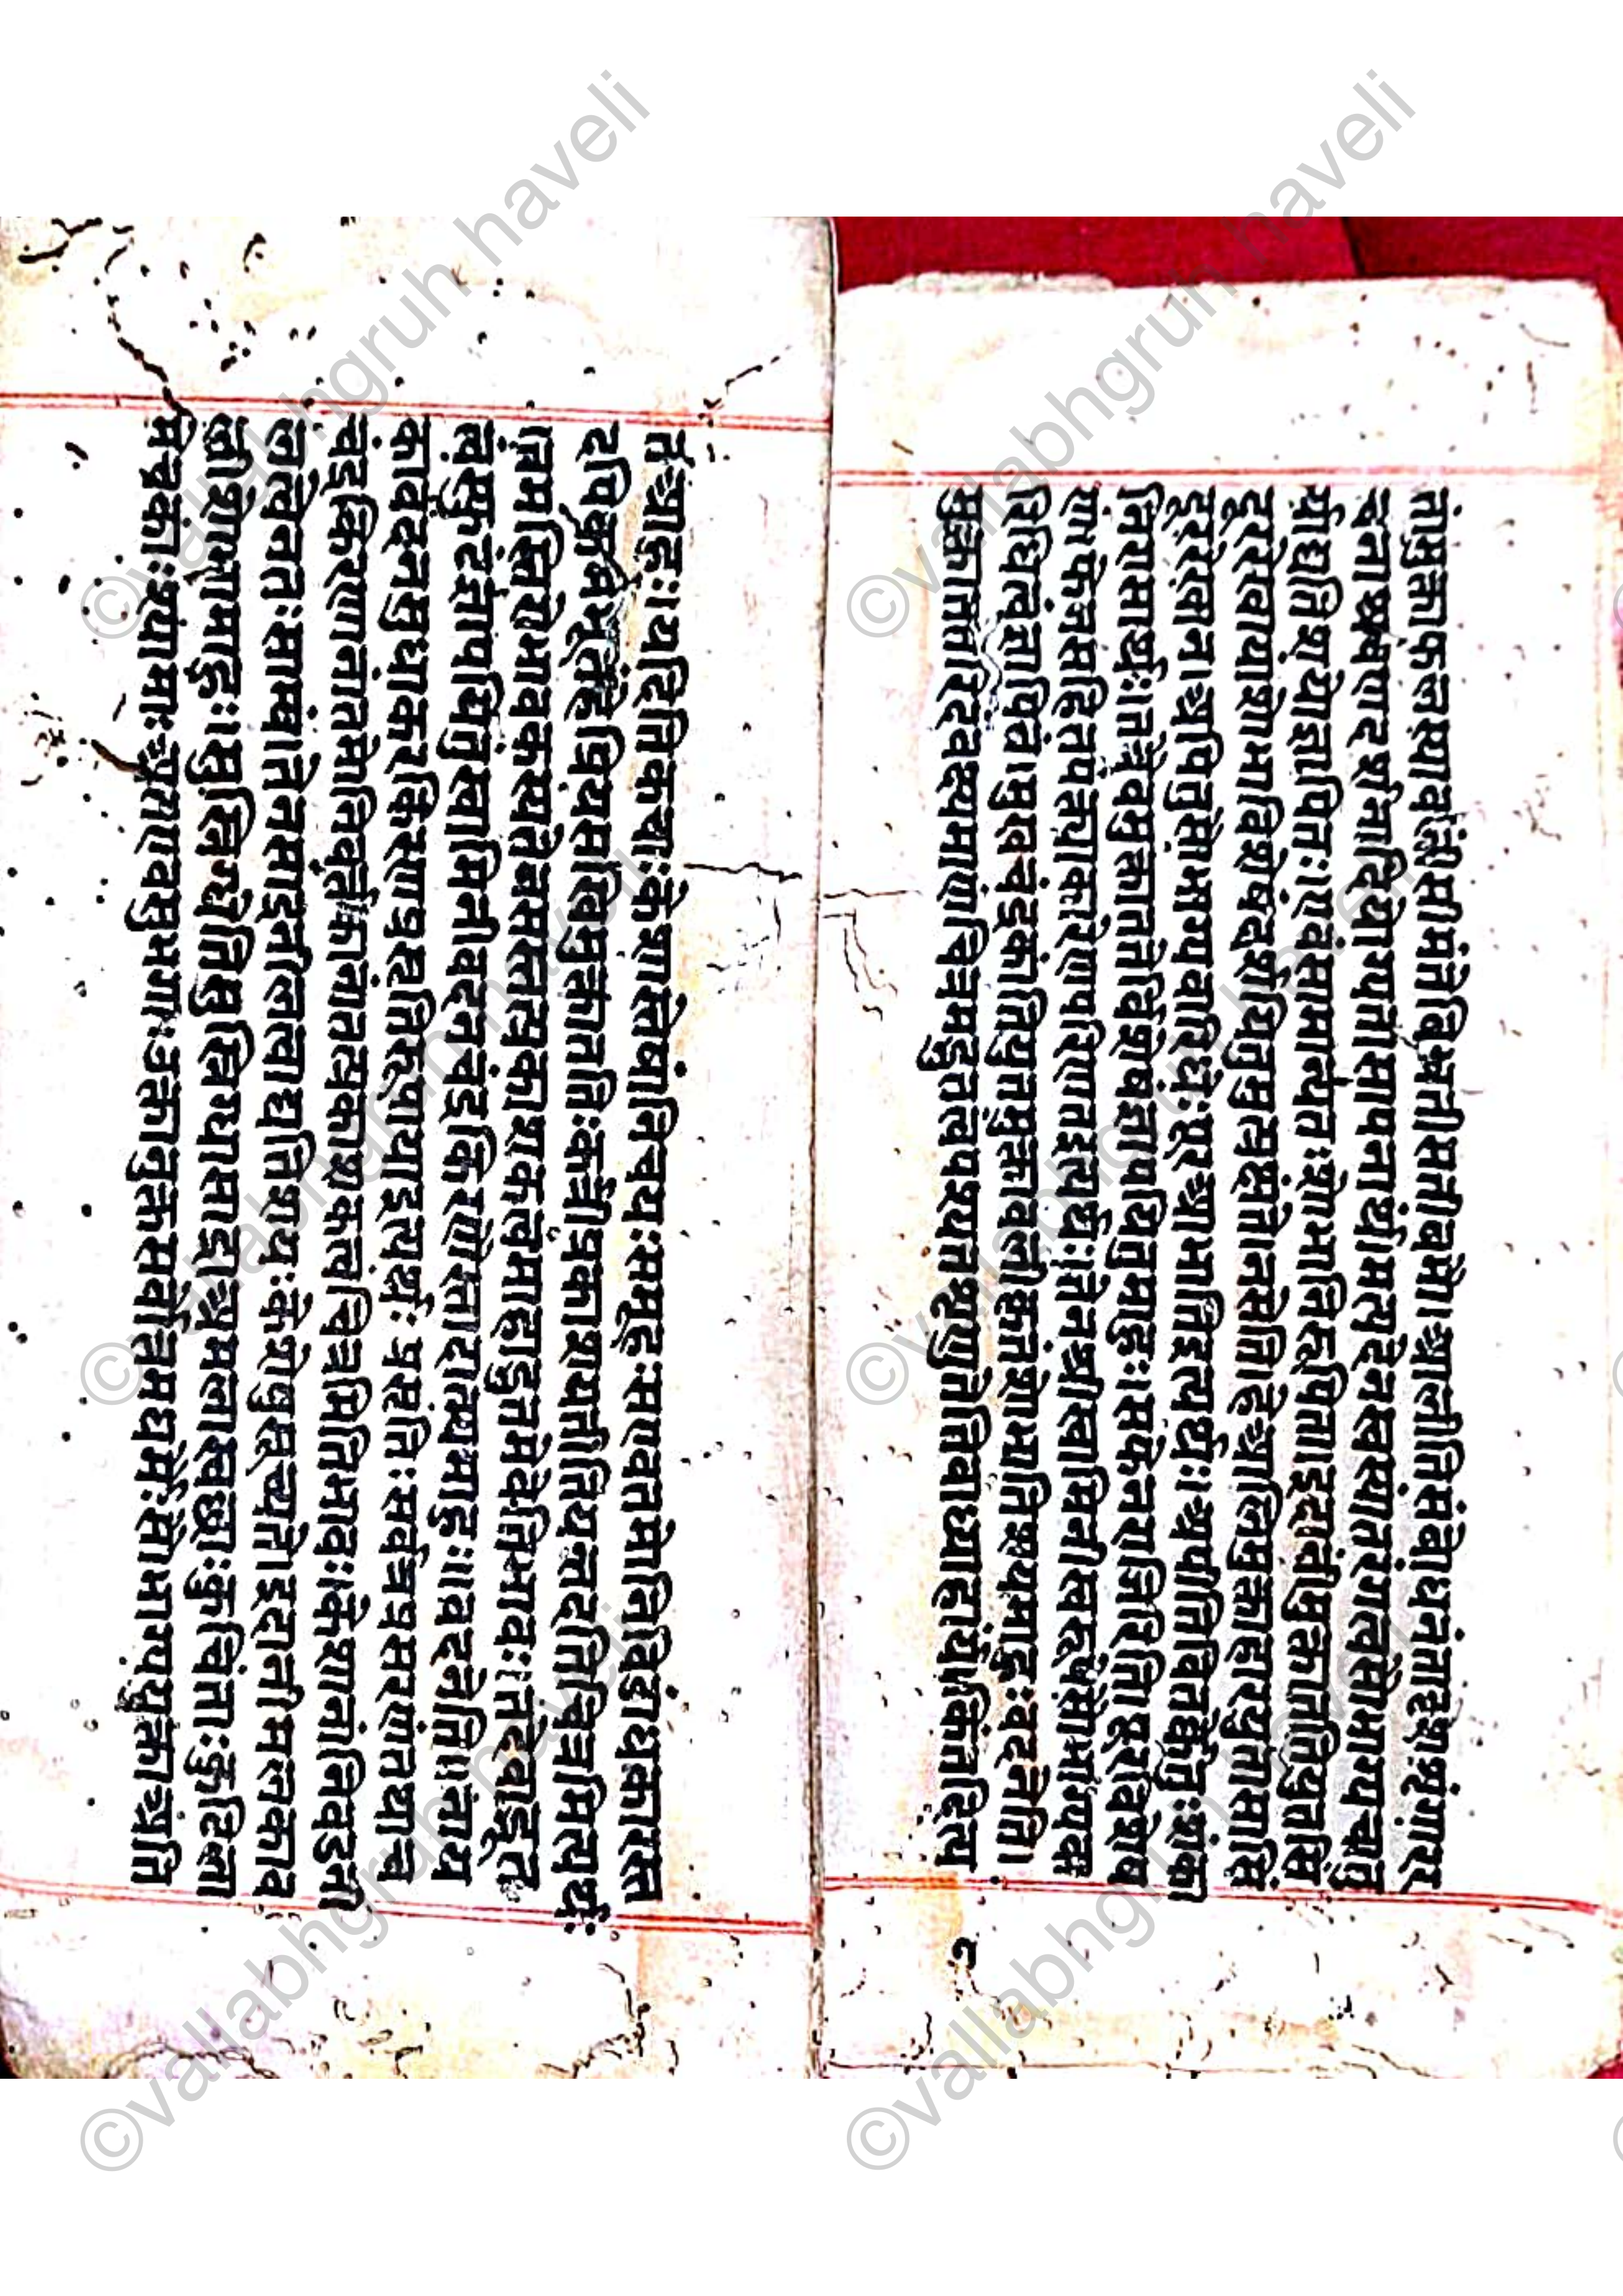 तांमुक्ताफलस्यावलींसीमंतेबिभ्रतीसतीबभौ।आलीतिसंबोधनंताहशशृंगारर
चनाश्रवणदर्शनादियोग्यतासापनार्थं।मत्पदेनस्वस्यातरंगत्वंसौभाग्यचतु
र्याद्यतिशयोज्ञापितः।एवंसामान्यतःशोभांनिरूपिता।इदानींमुक्तातत्तियुतसिं
दूररेखायाशोभाविशेषंदर्शयितुमुत्प्रेक्षते।नसेति।हेआलिमुक्ताहारयुतासासिं
दूररेखान।अपितुसौभाग्यवारिधेःपूरआभातिइत्यर्थः।अपीतिवितर्केतुःशंका
निरासार्थः।तत्रैवमुक्ताततेर्विशेषंज्ञापयितुमाहुः।सफेनराजिरिति।पूरविशेष
णंफेनसहितपंक्त्याकारेणपरिणतइत्यर्थः।तेनश्रीस्वामिनीस्वरूपंसौभाग्यैक
रिधित्वंज्ञापितं।मुखचंद्रकांतियुतमुक्तावलीकृतंशोभातिशयमाहुः।वदनेति।
मुक्ताततेरिदंवक्ष्यमाणंचित्रमद्भुतत्वंपश्यतशृणुतेतिवाध्याहार्यं।किंतदित्य
८
तआहुः।यदितिकचाःकेशास्तेषांनिचयःसमूहःसएवतमोनिबिडांधकारस्त
दपिकबभूतंहेप्रियसखिमुक्तांततिःकर्त्रीप्रकाशयतीतियत्तदतिचित्रमित्यर्थः
एकमस्तियोभावकथ्यतेनसमस्तप्रकाशकत्वंमाहाद्भुतमेवेतिभावः।तदेवाद्भूत
त्वंस्फुटंज्ञापयितुंस्वामिनीवदनचंद्रकिरणोस्तादात्म्यमाहुः॥वदनेति॥नाय
कावदनसुधाकरकिरणप्रसृतिरूपयाइत्यर्थः प्रसृतिःसर्वत्रप्रसरणंतथाच
चंद्रकिरणानांतमोनिवर्त्तकानांतत्प्रकाशकत्वंचित्रमितिभावः।केशानांनिवडनी
लत्वेनतःसाम्यं।तेनसाद्रनीलत्वाद्यतिशयःकेशेषुसूच्यते।इदानींमलकाव
लीशोभामाहुः।सुस्निग्धेतिसुस्निग्धासाद्राअमलास्वछाःकुचिताःकुटिला
मेचकाःश्यामाःअतएवसुभगाःउक्तानुक्तसर्वोत्तमधर्मैःसौभाग्ययुक्ताअति